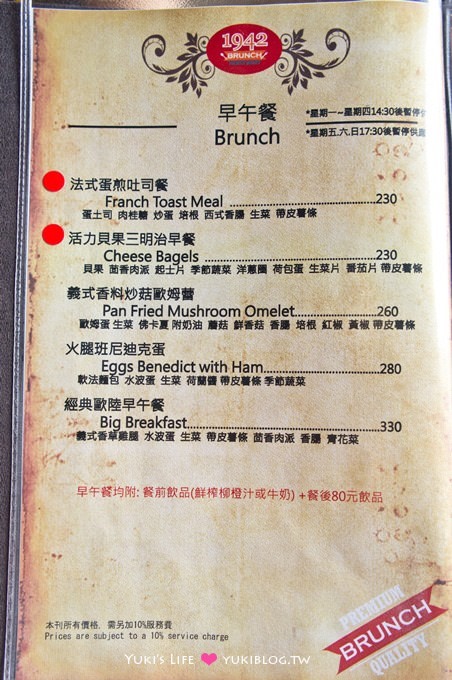 1942
BRUNCH
早午餐
Brunch
*星期一~星期四14:30後暫停
*星期五.六.日17:30後暫停供應
法式蛋煎吐司餐
Franch Toast Meal ........................230
蛋土司 肉桂糖 炒蛋 培根 西式香腸 生菜 帶皮薯條
活力貝果三明治早餐
Cheese Bagels ........................230
貝果 茴香肉派 起士片 季節蔬菜 洋蔥圈 荷包蛋 生菜片 番茄片 帶皮薯條
義式香料炒菇歐姆蕾
Pan Fried Mushroom Omelet........................260
歐姆蛋 生菜 佛卡夏 附奶油 蘑菇 鮮香菇 香腸 培根 紅椒 黃椒 帶皮薯條
火腿班尼迪克蛋
Eggs Benedict with Ham........................280
軟法麵包 水波蛋 生菜 荷蘭醬 帶皮薯條 季節蔬菜
經典歐陸早午餐
Big Breakfast........................330
義式香草雞腿 水波蛋 生菜 帶皮薯條 茴香肉派 香腸 青花菜
早午餐均附: 餐前飲品(鮮榨柳橙汁或牛奶) +餐後80元飲品
本刊所有價格, 需另加10%服務費
Prices are subject to a 10% service charge
PREMIUM
BRUNCH
QUALITY
YUKI'S LIFE ❤ YUKIBLOG.TW